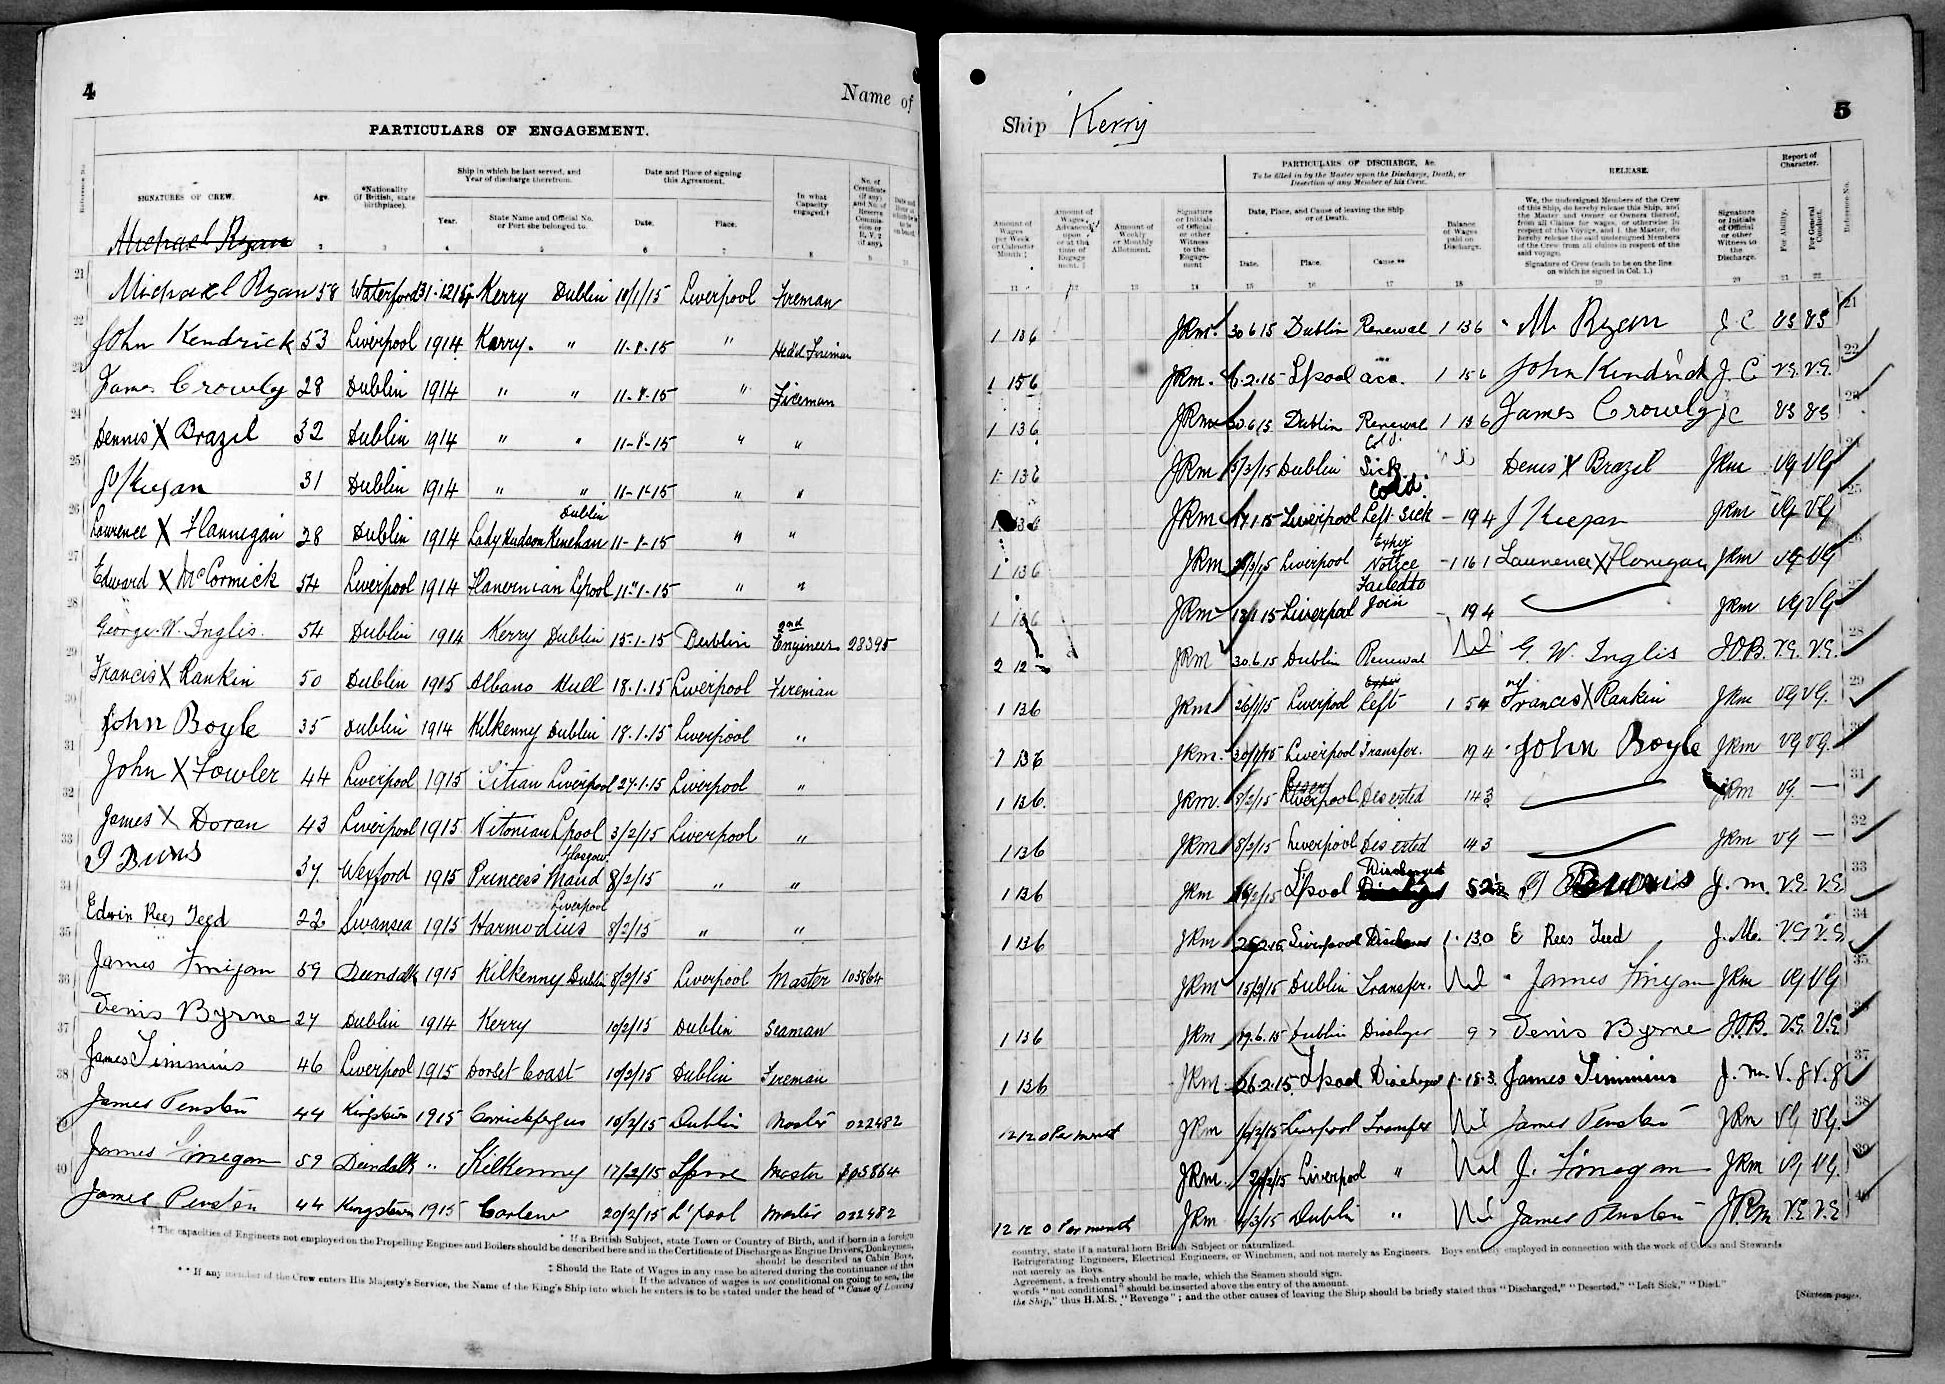 4
Name of
PARTICULARS OF ENGAGEMENT.
Reference No.
SIGNATURES OF CREW.
Age.
*Nationality (if British, state birthplace).
Ship in which he last served, and Year of discharge therefrom.
Year.
State Name and Official No. or Port she belonged to.
Date and Place of signing this Agreement.
Date.
Place.
In what Capacity engaged.†
No. of Certificate (if any) and No. of Reserve Commission or R.V.2 (if any).
2 3 4 5 6 7 8 9
Michael Ryan
21 Michael Ryan 58 Waterford 31-12-14 Kerry Dublin 10/1/15 Liverpool Fireman
22 John Kendrick 53 Liverpool 1914 Kerry. " 11-1-15 " Head Fireman
23 James Crowly 28 Dublin 1914 " " 11-1-15 " Fireman
24 Dennis X Brazil 32 Dublin 1914 " " 11-1-15 " "
25 J Keegan 31 Dublin 1914 " " 11-1-15 " "
26 Lawrence X Flannigan 28 Dublin 1914 Lady Hudson Kinehan Dublin 11-1-15 " "
27 Edward X McCormick 54 Liverpool 1914 Lpool 11-1-15 " "
28 George W. Inglis. 54 Dublin 1914 Kerry Dublin 15-1-15 Dublin 2nd Engineer 28395
29 Francis X Rankin 50 Dublin 1915 Albano Hull 18.1.15 Liverpool Fireman
30 John Boyle 35 Dublin 1914 Kilkenny Dublin 18.1.15 Liverpool "
31 John X Fowler 44 Liverpool 1915 Titian Liverpool 27.1.15 Liverpool "
32 James X Doran 43 Liverpool 1915 Lpool 3/2/15 Liverpool "
33 Burns 37 Wexford 1915 Princess Maud Glasgow 8/2/15 " "
34 Edwin Rees Teed 22 Swansea 1915 Harmodius Liverpool 8/2/15 " "
35 James Finegan 59 Dundalk 1915 Kilkenny Dublin 8/2/15 Liverpool Master 103864
36 Denis Byrne 27 Dublin 1914 Kerry 10/2/15 Dublin Seaman
37 James Timmins 46 Liverpool 1915 Dorset Coast 10/2/15 Dublin Fireman
38 James Penston 44 Kingstown 1915 Carrickfergus 10/2/15 Dublin Master 022482
39 James Finegan 59 Dundalk " Kilkenny 17/2/15 Master 103864
40 James Penston 44 Kingstown 1915 Carlow 20/2/15 L'pool Master 022482
* If a British Subject, state Town or Country of Birth, and if born in a foreign
† The capacities of Engineers not employed on the Propelling Engines and Boilers should be described here and in the Certificate of Discharge as Engine Drivers, Donkeymen,
should be described as Cabin Boys,
‡ Should the Rate of Wages in any case be altered during the continuance of this
If the advance of wages is not conditional on going to sea, the
** If any member of the Crew enters His Majesty's Service, the Name of the King's Ship into which he enters is to be stated under the head of "Cause of Leaving
Ship Kerry
5
Amount of Wages per Week or Calendar Month ‡
Amount of Wages Advanced upon or at the time of Engagement. ‡
Amount of Weekly or Monthly Allotment.
Signature or Initials of Official or other Witness to the Engagement
PARTICULARS OF DISCHARGE, &c.
To be filled in by the Master upon the Discharge, Death, or Desertion of any Member of his Crew.
Date, Place, and Cause of leaving the Ship or of Death.
Date.
Place.
Cause.**
Balance of Wages paid on Discharge.
RELEASE.
We, the undersigned Members of the Crew of this Ship, do hereby release this Ship, and the Master and Owner or Owners thereof, from all Claims for wages, or otherwise in respect of this Voyage, and I, the Master, do hereby release the said undersigned Members of the Crew from all claims in respect of the said voyage.
Signature of Crew (each to be on the line on which he signed in Col. 1.)
Signature or Initials of Official or other Witness to the Discharge.
Report of Character.
For Ability.
For General Conduct.
Reference No.
11 12 13 14 15 16 17 18 19 20 21 22
1 136 JRM. 30.6.15 Dublin Renewal 1 136 M Ryan J C VG VG 21
1 156 JRM. .2.15 Lpool acc. 1 156 John Kendrick J. C V.G. V.G. 22
1 136 JRM 30.6.15 Dublin Renewal 1 136 James Crowly JC VG VG 23
1 136 JRM 5/3/15 Dublin Cold. Sick Denis X Brazil JRM VG VG 24
1 136 JRM 17.1.15 Liverpool Left Sick Cold. - 19 4 J Keegan JRM VG VG 25
1 136 JRM Liverpool Notice - 1 6 1 Laurence X Flanegan JRM VG VG 26
1 136 JRM 12.1.15 Liverpool Failed to Join - 19 4 JRM VG VG 27
2 12 - JRM 30.6.15 Dublin Renewal Nil G. W. Inglis J.O.B. V.G. V.G. 28
1 136 JRM 26/1/15 Liverpool Left 1 5 4 Francis X Rankin JRM VG VG. 29
1 136 JRM. 20/1/15 Liverpool Transfer. 19 4 John Boyle JRM VG VG. 30
1 136. JRM. 8/2/15 Liverpool Deserted 14 3 JRM VG. — 31
1 136 JRM 8/2/15 Liverpool Deserted 14 3 JRM VG — 32
1 136 JRM L'pool Discharged Burns J. M. V.G. V.G. 33
1 136 JRM 25.2.15 Liverpool 1. 13.0 E Rees Teed J. M. V.G V.G 34
JRM 15/2/15 Dublin Transfer. Nil James Finegan JRM VG VG 35
1 136 JRM 19.6.15 Dublin Discharge 9 7 Denis Byrne J.O.B. V.G. V.G. 36
1 136 JRM 26.2.15. Lpool 1. 18.3. James Timmins J. M. V.G V.G 37
12 12 0 Per month JRM 16/2/15 Liverpool Transfer Nil James Penston JRM VG VG. 38
JRM. Liverpool " Nil J. Finegan JRM VG VG. 39
12 12 0 Per month JRM 4/3/15 Dublin " Nil James Penston JRM V.G. V.G. 40
country, state if a natural born British Subject or naturalized.
Refrigerating Engineers, Electrical Engineers, or Winchmen, and not merely as Engineers. Boys entirely employed in connection with the work of Cooks and Stewards
not merely as Boys.
Agreement, a fresh entry should be made, which the Seamen should sign.
words "not conditional" should be inserted above the entry of the amount.
the Ship," thus H.M.S. "Revenge"; and the other causes of leaving the Ship should be briefly stated thus "Discharged," "Deserted," "Left Sick," "Died."
[Sixteen pages.